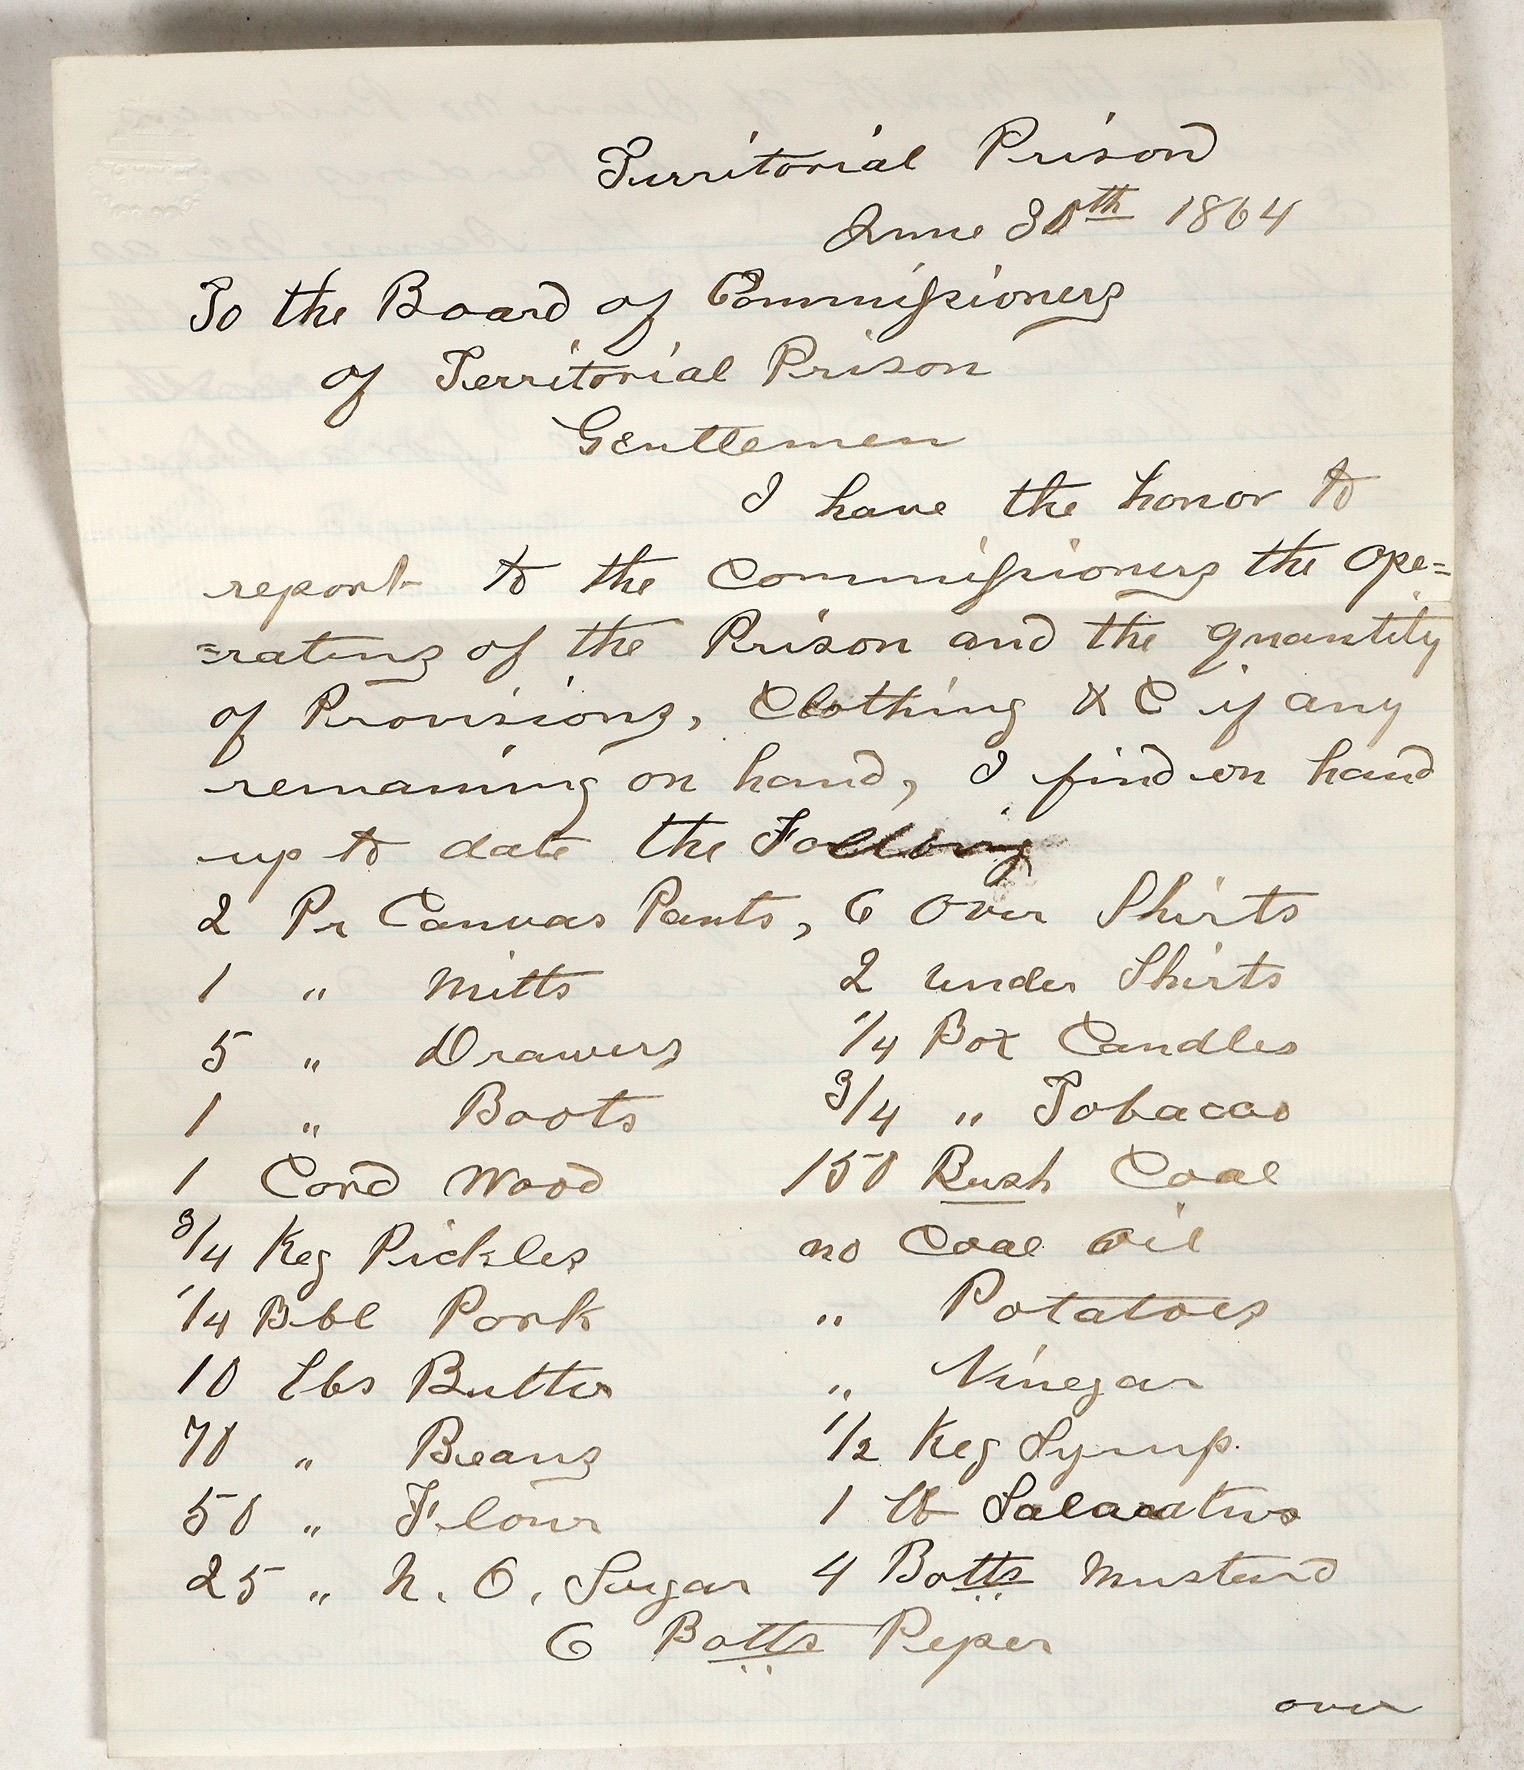 Territorial Prison
June 30th 1864
To the Board of Commissioners
of Territorial Prison
Gentlemen
I have the honor to
report to the Commissioners the ope=
=ratins of the Prison and the quantity
of Provisions, Clothing & C if any
remaining on hand, I find on hand
up to date the Following
2 Pr Canvas Pants, 6 Over Shirts
1 " Mitts 2 under Shirts
5 " Drawers 1/4 Box Candles
1 " Boots 3/4 " Tobacco
1 Cord Wood 150 Bush Coal
3/4 Keg Pickles no Coal Oil
1/4 Bbl Pork " Potatoes
10 lbs Butter " Vinegar
70 " Beans 1/2 Keg Syrup.
50 " Flour 1 lb Salaratus
25 " N. O. Sugar 4 Botts Mustard
6 Botts Peper
over